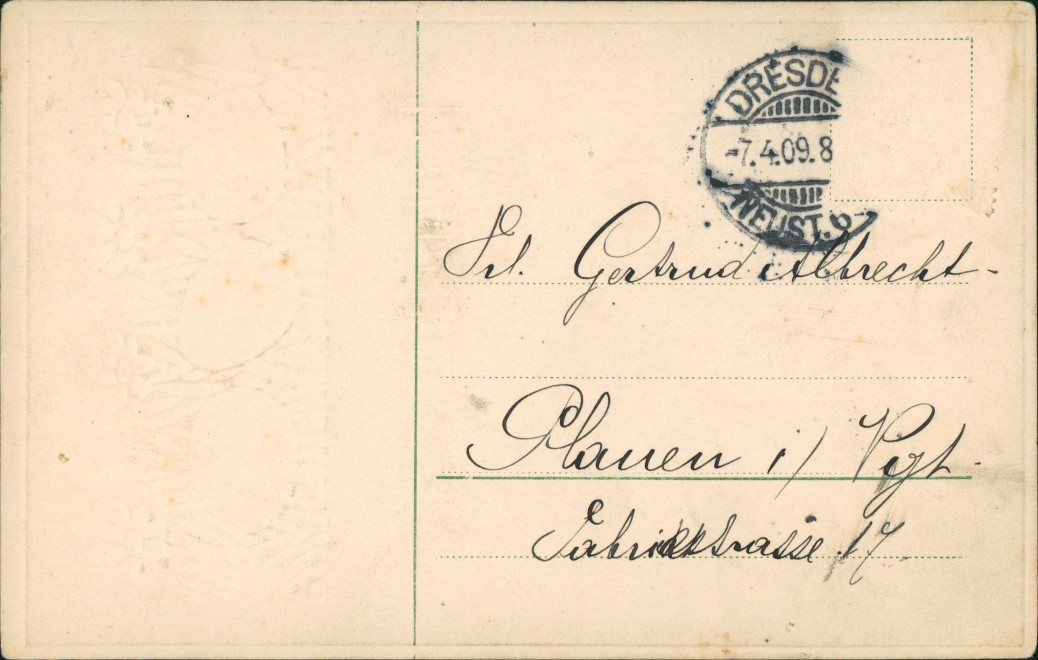 DRESDE
-7.4.09.8
NEUST. 6
Frl. Gertrud Albrecht-
Plauen i/ Vgt.
Fabrikstrasse 17